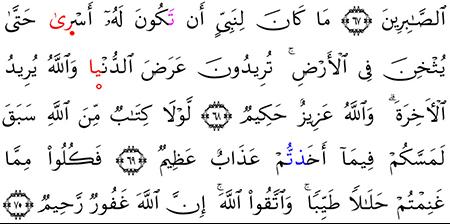 الصَّـٰبِرِينَ ٦٧ مَا كَانَ لِنَبِىٍّ أَن تَكُونَ لَهُۥٓ أَسْرىٰ حَتَّىٰ
يُثْخِنَ فِى الْأَرْضِ ۚ تُرِيدُونَ عَرَضَ الدُّنْيا وَاللَّهُ يُرِيدُ
الْأَخِرَةَ ۗ وَاللَّهُ عَزِيزٌ حَكِيمٌ ٦٨ لَّوْلَا كِتَـٰبٌ مِّنَ اللَّهِ سَبَقَ
لَمَسَّكُمْ فِيمَا أَخَذتُّمْ عَذَابٌ عَظِيمٌ ٦٩ فَكُلُوا مِمَّا
غَنِمْتُمْ حَلَـٰلًا طَيِّبًا ۚ وَاتَّقُوا اللَّهَ ۚ إِنَّ اللَّهَ غَفُورٌ رَّحِيمٌ ٧٠